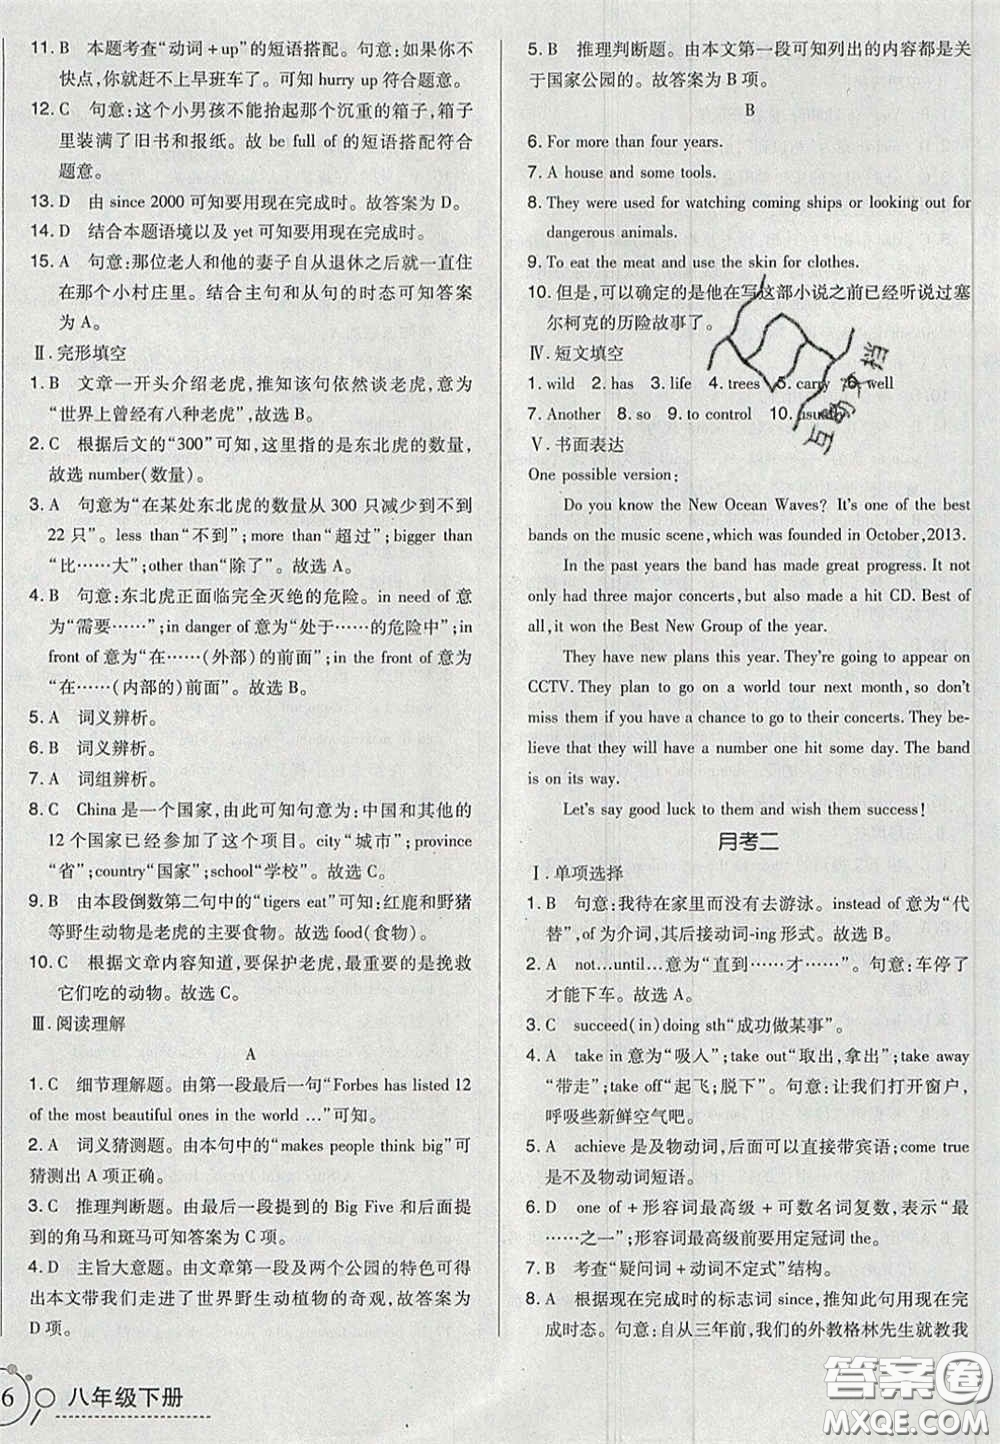 11. B　本题考查“动词+up”的短语搭配。句意:如果你不
快点,你就赶不上早班车了。可知 hurry up 符合题意。
12. C　句意:这个小男孩不能抬起那个沉重的箱子,箱子
里装满了旧书和报纸。故 be full of 的短语搭配符合
题意。
13. D　由 since 2000 可知要用现在完成时。故答案为 D。
14. D　结合本题语境以及 yet 可知要用现在完成时。
15. A　句意:那位老人和他的妻子自从退休之后就一直住
在那个小村庄里。结合主句和从句的时态可知答案
为 A。
Ⅱ. 完形填空
1. B　文章一开头介绍老虎,推知该句依然谈老虎,意为
“世界上曾经有八种老虎”,故选 B。
2. C　根据后文的“300”可知,这里指的是东北虎的数量,
故选 number(数量)。
3. A　句意为“在某处东北虎的数量从 300 只减少到不到
22 只”。less than“不到”;more than“超过”;bigger than
“比……大”;other than“除了”。故选 A。
4. B　句意:东北虎正面临完全灭绝的危险。in need of 意
为“需要……”;in danger of 意为“处于……的危险中”;in
front of 意为“在……(外部)的前面”;in the front of 意为
“在……(内部的)前面”。故选 B。
5. A　词义辨析。
6. B　词义辨析。
7. A　词组辨析。
8. C　China 是一个国家,由此可知句意为:中国和其他的
12 个国家已经参加了这个项目。city“城市”;province
“省”;country“国家”;school“学校”。故选 C。
9. B　由本段倒数第二句中的“tigers eat”可知:红鹿和野猪
等野生动物是老虎的主要食物。故选 food(食物)。
10. C　根据文章内容知道,要保护老虎,最重要的是挽救
它们吃的动物。故选 C。
Ⅲ. 阅读理解
A
1. C　细节理解题。由第一段最后一句“Forbes has listed 12
of the most beautiful ones in the world …”可知。
2. A　词义猜测题。由本句中的“makes people think big”可
猜测出 A 项正确。
3. C　推理判断题。由最后一段提到的 Big Five 和后面提到
的角马和斑马可知答案为 C 项。
4. D　主旨大意题。由文章第一段及两个公园的特色可得
出本文带我们走进了世界野生动植物的奇观,故答案为
D 项。
6 八年级下册
5. B　推理判断题。由本文第一段可知列出的内容都是关
于国家公园的。故答案为 B 项。
B
6. For more than four years.
7. A house and some tools.
8. They were used for watching coming ships or looking out for
dangerous animals.
9. To eat the meat and use the skin for clothes.
10. 但是,可以确定的是他在写这部小说之前已经听说过塞
尔柯克的历险故事了。
Ⅳ. 短文填空
1. wild　2. has　3. life　4. trees　5. carry　6. well
7. Another　8. so　9. to control　10. usually
Ⅴ. 书面表达
One possible version:
Do you know the New Ocean Waves? It's one of the best
bands on the music scene, which was founded in October, 2013.
In the past years the band has made great progress. It not
only had three major concerts, but also made a hit CD. Best of
all, it won the Best New Group of the year.
They have new plans this year. They're going to appear on
CCTV. They plan to go on a world tour next month, so don't
miss them if you have a chance to go to their concerts. They be-
lieve that they will have a number one hit some day. The band
is on its way.
Let's say good luck to them and wish them success!
月考二
Ⅰ. 单项选择
1. B　句意:我待在家里而没有去游泳。instead of 意为“代
替”,of 为介词,其后接动词-ing 形式。故选 B。
2. A　not…until…意为“直到……才……”。句意:车停了
才能下车。故选 A。
3. C　succeed(in)doing sth“成功做某事”。
4. A　take in 意为“吸入”;take out“取出,拿出”;take away
“带走”;take off“起飞;脱下”。句意:让我们打开窗户,
呼吸些新鲜空气吧。
5. A　achieve 是及物动词,后面可以直接带宾语;come true
是不及物动词短语。
6. D　one of + 形容词最高级 + 可数名词复数,表示“最
……之一”;形容词最高级前要用定冠词 the。
7. B　考查“疑问词+动词不定式”结构。
8. A　根据现在完成时的标志词 since,推知此句用现在完
成时态。句意:自从三年前,我们的外教格林先生就教我
互助文档
答案圈
MXQE.COM